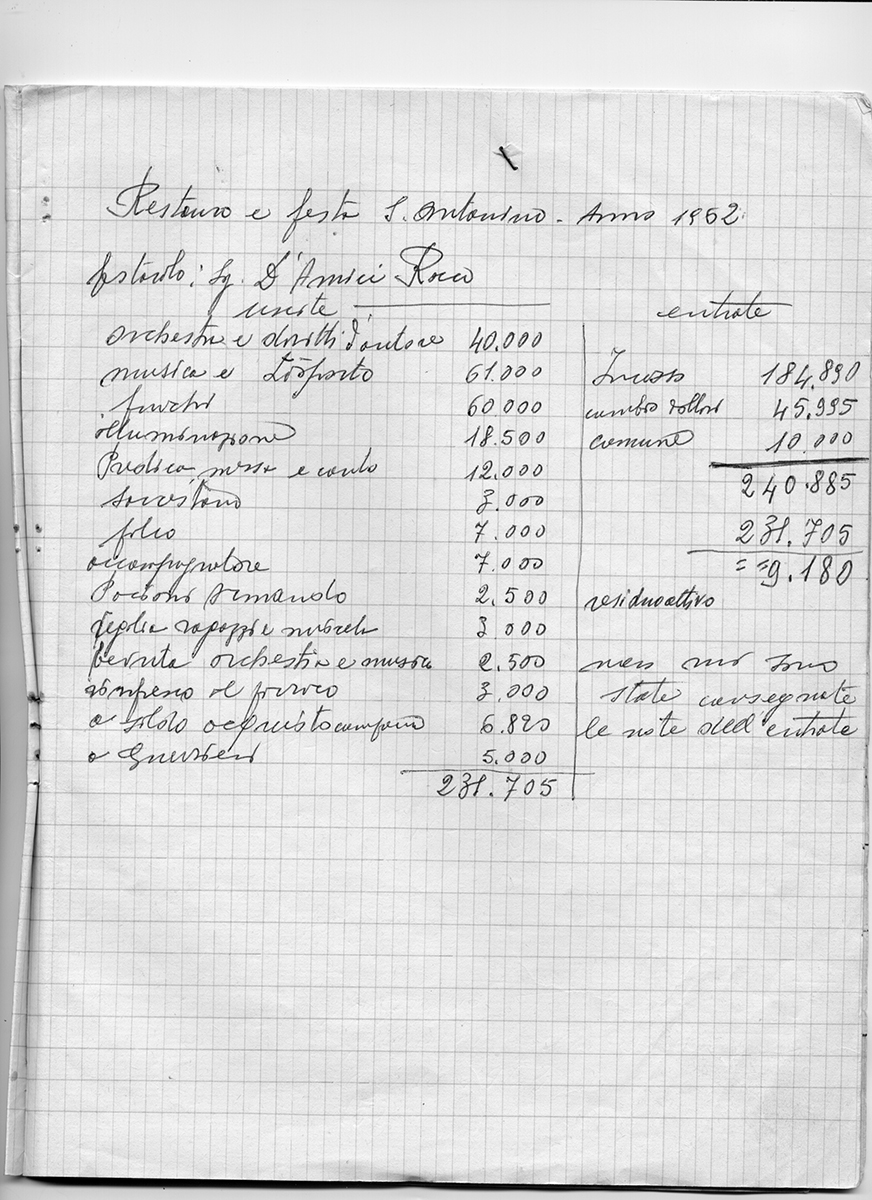 Restauro e festa S. Antonino - Anno 1952
festarolo: Sg. D'Amici Rocco
uscite
orchestra e diritti d'autore 40.000
musica e trasporto 61.000
fuochi 60.000
illuminazione 18.500
Predica messa e canto 12.000
sacrestano 3.000
filio 7.000
accompagnatore 7.000
Pocioni Armando 2.500
paglia ragazzi e musica 3.000
bevuta orchestra e musica 2.500
rinfresco al parroco 3.000
a saldo acquisto campana 6.820
a Guerrieri 5.000
231.705
entrate
Incasso 184.890
cambio dollari 45.995
comune 10.000
240.885
231.705
= = 9.180
residuo attivo
non mi sono
state consegnate
le note dell'entrate